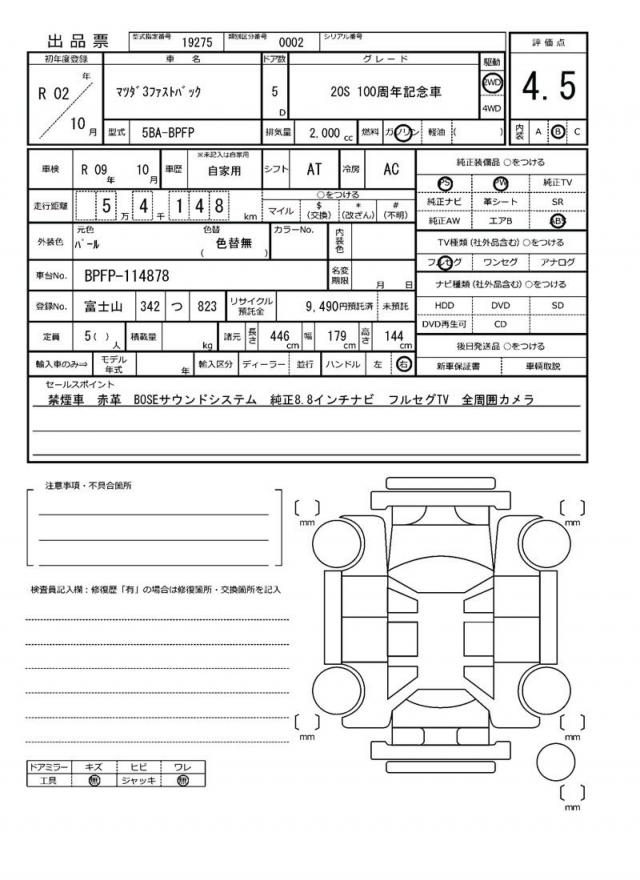 出品票 型式指定番号 19275 類別区分番号 0002 シリアル番号
初年度登録 車 名 ドア数 グレード 駆動 評価点
R 02 年 10 月 ﾏﾂﾀﾞ3ﾌｧｽﾄﾊﾞｯｸ 5 D 20S 100周年記念車 2WD 4WD 4.5
型式 5BA-BPFP 排気量 2,000 cc 燃料 ガソリン 軽油 ( ) 内装 A B C
車検 R 09 年 10 月 車歴 ※未記入は自家用 自家用 シフト AT 冷房 AC
純正装備品 ○をつける
PS PW 純正TV
純正ナビ 革シート SR
純正AW エアB ABS
走行距離 5 万 4 千 1 4 8 km ○をつける マイル $ (交換) * (改ざん) # (不明)
外装色 元色 ﾊﾟｰﾙ 色替 ( 色替無 ) カラーNo. 内装色
TV種類 (社外品含む) ○をつける
フルセグ ワンセグ アナログ
車台No. BPFP-114878 名変期限 月 日
ナビ種類 (社外品含む) ○をつける
HDD DVD SD
DVD再生可 CD
登録No. 富士山 342 つ 823 リサイクル預託金 9,490円預託済 未預託
定員 5( ) 人 積載量 kg 諸元 長さ 446 cm 幅 179 cm 高さ 144 cm
後日発送品 ○をつける
新車保証書 車輌取説
輸入車のみ⇒ モデル年式 年 輸入区分 ディーラー 並行 ハンドル 左 右
セールスポイント
禁煙車 赤革 BOSEサウンドシステム 純正8.8インチナビ フルセグTV 全周囲カメラ
注意事項・不具合箇所
mm mm
検査員記入欄：修復歴「有」の場合は修復箇所・交換箇所を記入
mm mm
mm
ドアミラー キズ ヒビ ワレ
工具 無 ジャッキ 無